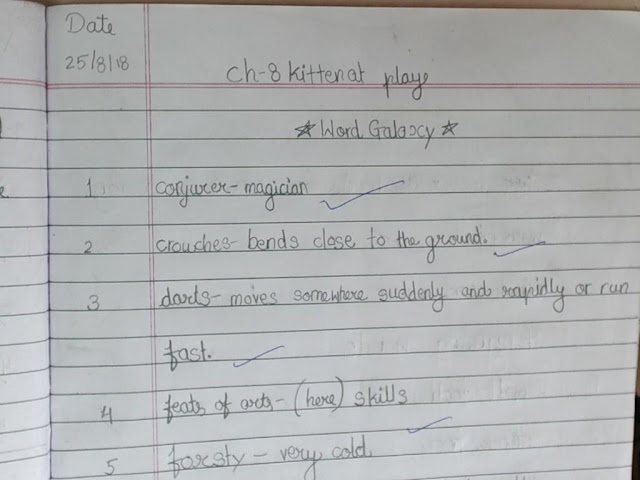 Date
25/8/18
Ch-8 Kitten at playe
☆ Word Galaxy ☆
1 conjurer - magician
2 crouches - bends close to the ground.
3 darts - moves somewhere suddenly and rapidly or run
fast.
4 feats of arts - (here) skills
5 forsty - very cold.